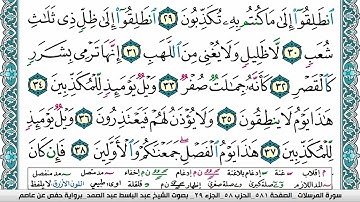 ٱنطَلِقُوٓا۟ إِلَىٰ مَا كُنتُم بِهِۦ تُكَذِّبُونَ ٢٩ ٱنطَلِقُوٓا۟ إِلَىٰ ظِلٍّ ذِى ثَلَـٰثِ
شُعَبٍ ٣٠ لَّا ظَلِيلٍ وَلَا يُغْنِى مِنَ ٱللَّهَبِ ٣١ إِنَّهَا تَرْمِى بِشَرَرٍ
كَٱلْقَصْرِ ٣٢ كَأَنَّهُۥ جِمَـٰلَتٌ صُفْرٌ ٣٣ وَيْلٌ يَوْمَئِذٍ لِّلْمُكَذِّبِينَ ٣٤
هَـٰذَا يَوْمُ لَا يَنطِقُونَ ٣٥ وَلَا يُؤْذَنُ لَهُمْ فَيَعْتَذِرُونَ ٣٦ وَيْلٌ يَوْمَئِذٍ
لِّلْمُكَذِّبِينَ ٣٧ هَـٰذَا يَوْمُ ٱلْفَصْلِ جَمَعْنَـٰكُمْ وَٱلْأَوَّلِينَ ٣٨ فَإِن كَانَ
سورة المرسلات الصفحة ٥٨١ الجزء ٢٩ بصوت الشيخ عبد الباسط عبد الصمد برواية حفص عن عاصم